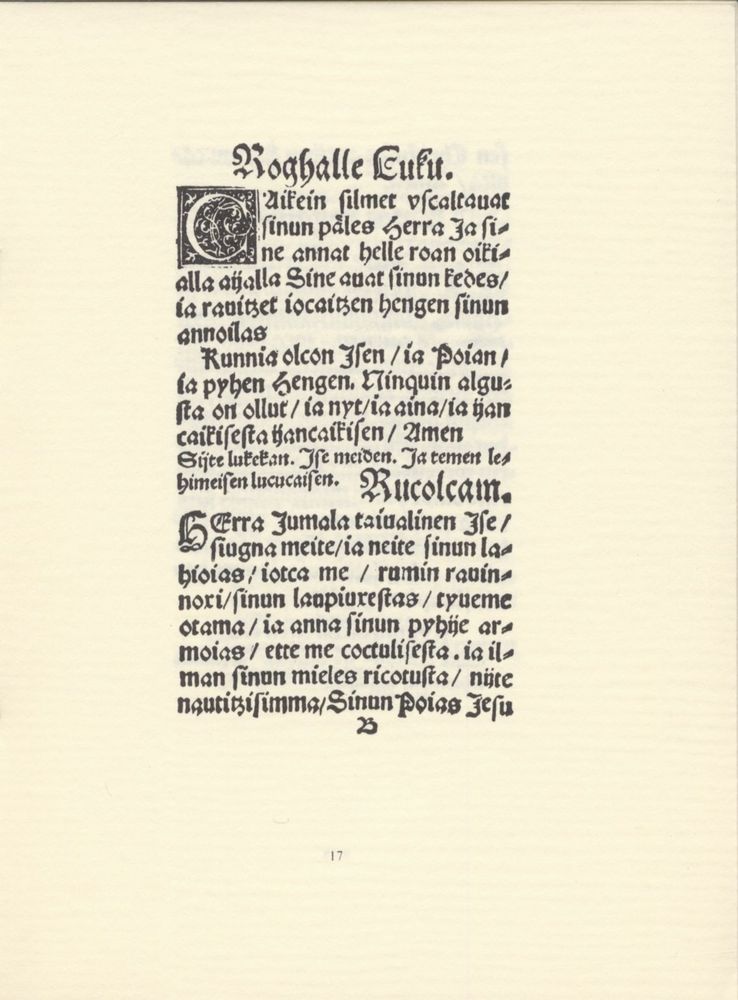 Roghalle Luku.
CAikein silmet vscaltauat
sinun päles Herra Ja si⸗
ne annat helle roan oiki⸗
alla aijalla Sine auat sinun kedes/
ia rauitzet iocaitzen hengen sinun
annoilas
Kunnia olcon Jsen / ia Poian /
ia pyhen Hengen. Ninquin algu⸗
sta on ollut / ia nyt / ia aina / ia ijan
caikisesta ijancaikisen / Amen
Sijte lukekan. Jse meiden. Ja temen le⸗
himeisen lucucaisen. Rucolcam.
HErra Jumala taiualinen Jse /
siugna meite / ia neite sinun la⸗
hioias / iotca me / rumin rauin⸗
noxi / sinun laupiuxestas / tyueme
otama / ia anna sinun pyhije ar⸗
moias / ette me coctulisesta . ia il⸗
man sinun mieles ricotusta / nijte
nautitzisimma / Sinun Poias Jesu
B
17